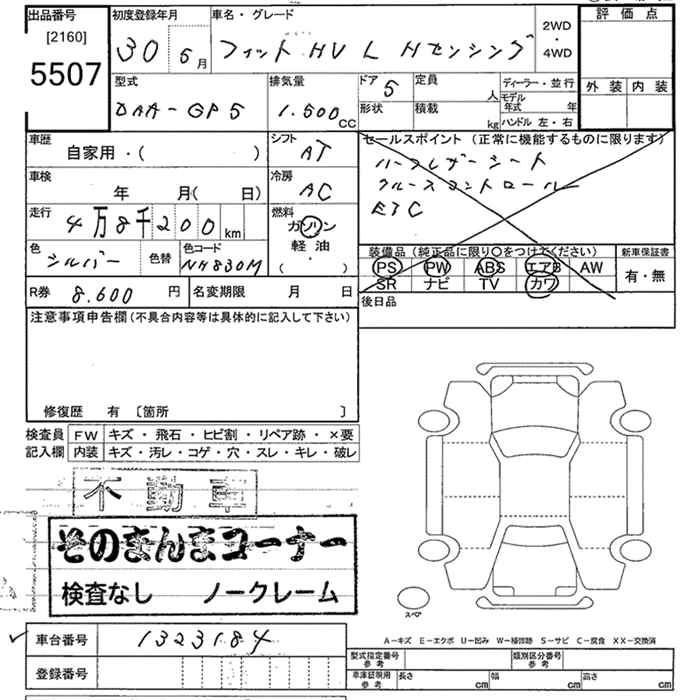 出品番号 初度登録年月 車名・グレード 評価点
[2160] 30 6月 フィット HV L Hセンシング 2WD・4WD
5507 型式 排気量 ドア 5 定員 人 ディーラー・並行 外装 内装
DAA-GP5 1.500cc 形状 積載 kg モデル年式 年
ハンドル 左・右
車歴 自家用・( ) シフト AT セールスポイント (正常に機能するものに限ります)
ハーフレザーシート
車検 年 月( 日) 冷房 AC クルーズコントロール
走行 4万8千200km 燃料 ガソリン ETC
軽油
( ・ )
色 シルバー 色替 色コード NH830M 装備品 (純正品に限り○をつけてください) 新車保証書
PS PW ABS エアB AW 有・無
SR ナビ TV カワ
R券 8.600円 名変期限 月 日 後日品
注意事項申告欄(不具合内容等は具体的に記入して下さい)
修復歴 有 〔箇所 〕
検査員 FW キズ・飛石・ヒビ割・リペア跡・×要
記入欄 内装 キズ・汚レ・コゲ・穴・スレ・キレ・破レ
不動車
そのまんまコーナー
検査なし ノークレーム
スペア
A-キズ E-エクボ U-凹み W-補修跡 S-サビ C-腐食 XX-交換済
車台番号 1323184
登録番号
型式指定番号 参考 類別区分番号 参考
車庫証明用 参考 長さ cm 幅 cm 高さ cm